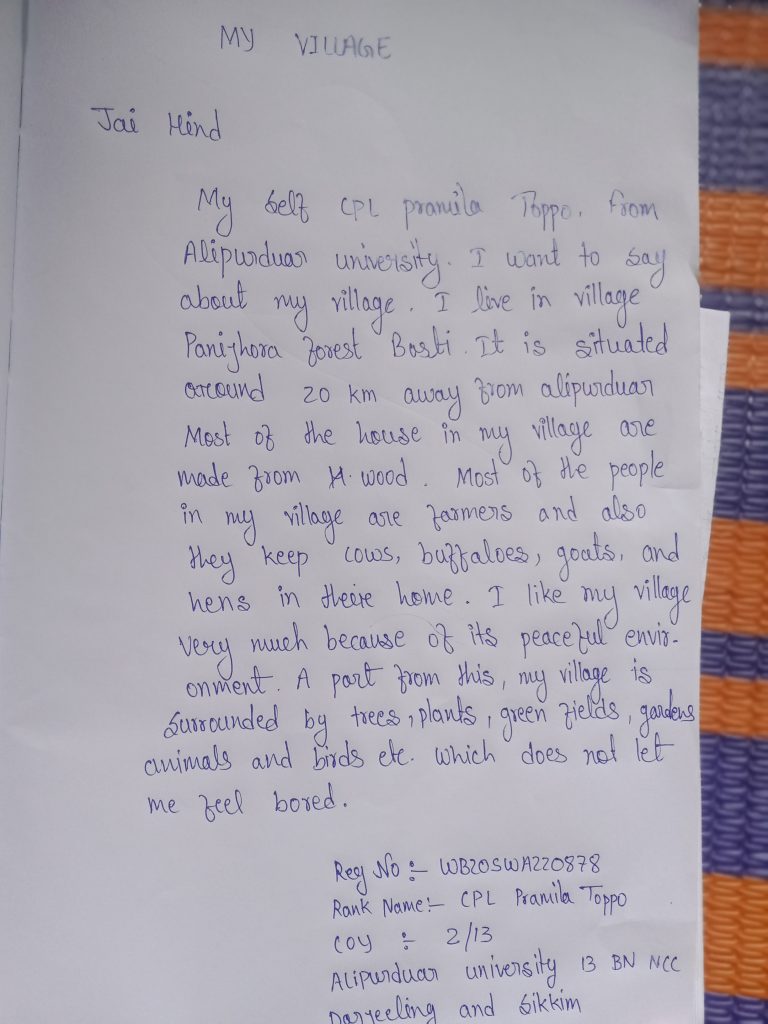 MY VILLAGE
Jai Hind
My self CPL pramila Toppo. From
Alipurduar university. I want to say
about my village. I live in village
Panijhora forest Basti. It is situated
around 20 km away from alipurduar
Most of the house in my village are
made from wood. Most of the people
in my village are farmers and also
they keep cows, buffaloes, goats, and
hens in theire home. I like my village
very much because of its peaceful envir-
onment. A part from this, my village is
surrounded by trees, plants, green fields, gardens
animals and birds etc. which does not let
me feel bored.
Reg No :- WB20SWA220878
Rank Name:- CPL Pramila Toppo
COY :- 2/13
Alipurduar university 13 BN NCC
Darjeeling and Sikkim